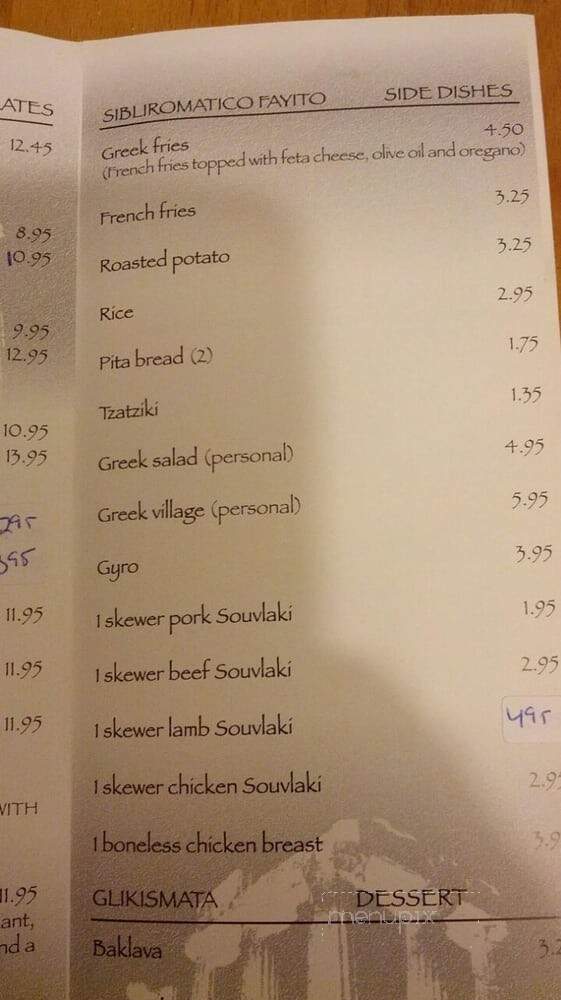 ATES
12.45
8.95
10.95
9.95
12.95
10.95
13.95
11.95
11.95
11.95
WITH
11.95
ant,
nd a
SIBLIROMATICO FAYITO SIDE DISHES
Greek fries 4.50
(French fries topped with feta cheese, olive oil and oregano)
French fries 3.25
Roasted potato 3.25
Rice 2.95
Pita bread (2) 1.75
Tzatziki 1.35
Greek salad (personal) 4.95
Greek village (personal) 5.95
Gyro 3.95
1 skewer pork Souvlaki 1.95
1 skewer beef Souvlaki 2.95
1 skewer lamb Souvlaki 495
1 skewer chicken Souvlaki 2.95
1 boneless chicken breast 3.9
GLIKISMATA DESSERT
menupix
Baklava 3.2